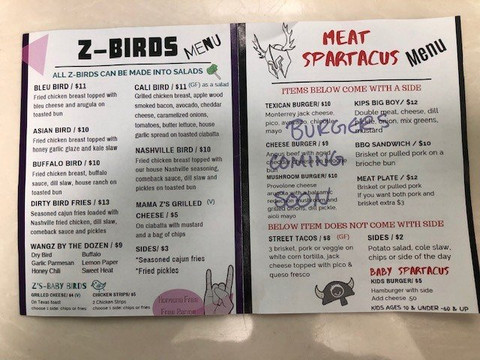 Z-BIRDS MENU
ALL Z-BIRDS CAN BE MADE INTO SALADS
BLEU BIRD / $11
Fried chicken breast topped with
bleu cheese and arugula on
toasted bun
ASIAN BIRD / $10
Fried chicken breast topped with
honey garlic glaze and kale slaw
BUFFALO BIRD / $10
Fried chicken breast, buffalo
sauce, dill slaw, house ranch on
toasted bun
DIRTY BIRD FRIES / $13
Seasoned cajun fries loaded with
Nashville fried chicken, dill slaw,
comeback sauce and pickles
WANGZ BY THE DOZEN / $9
Dry Bird Buffalo
Garlic Parmesan Lemon Paper
Honey Chili Sweet Heat
Z'S-BABY BIRDS
GRILLED CHEESE/ $4 (V)
On Texas toast
choose 1 side: chips or fries
CHICKEN STRIPS/ $5
2 Chicken Strips
choose 1 side: chips or fries
CALI BIRD / $11 (GF) as a salad
Grilled chicken breast, apple wood
smoked bacon, avocado, cheddar
cheese, caramelized onions,
tomatoes, butter lettuce, house
garlic spread on toasted ciabatta
NASHVILLE BIRD / $10
Fried chicken breast topped with
our house Nashville seasoning,
comeback sauce, dill slaw and
pickles on toasted bun
MAMA Z'S GRILLED (V)
CHEESE / $5
On ciabatta with mustard
and a bag of chips
SIDES/ $3
*Seasoned cajun fries
*Fried pickles
MEAT
SPARTACUS Menu
ITEMS BELOW COME WITH A SIDE
TEXICAN BURGER/ $10
Monterrey jack cheese,
CHEESE BURGER / $9
MUSHROOM BURGER/ $10
Provolone cheese
aioli mayo
BURGERS
COMING
SOON!
KIPS BIG BOY/ $12
Double meat, cheese, dill
mix greens,
mustard
BBQ SANDWICH / $10
Brisket or pulled pork on a
brioche bun
MEAT PLATE / $12
Brisket or pulled pork
If you want both pork and
brisket extra $3
ITEM BELOW DOES NOT COME WITH SIDE
STREET TACOS / $8 (GF)
3 brisket, pork or veggie on
white corn tortilla, jack
cheese topped with pico &
queso fresco
SIDES / $2
Potato salad, cole slaw,
chips or side of the day
BABY SPARTACUS
KIDS BURGER/ $5
Hamburger with side
Add cheese .50
KIDS AGES 10 & UNDER -60 & UP